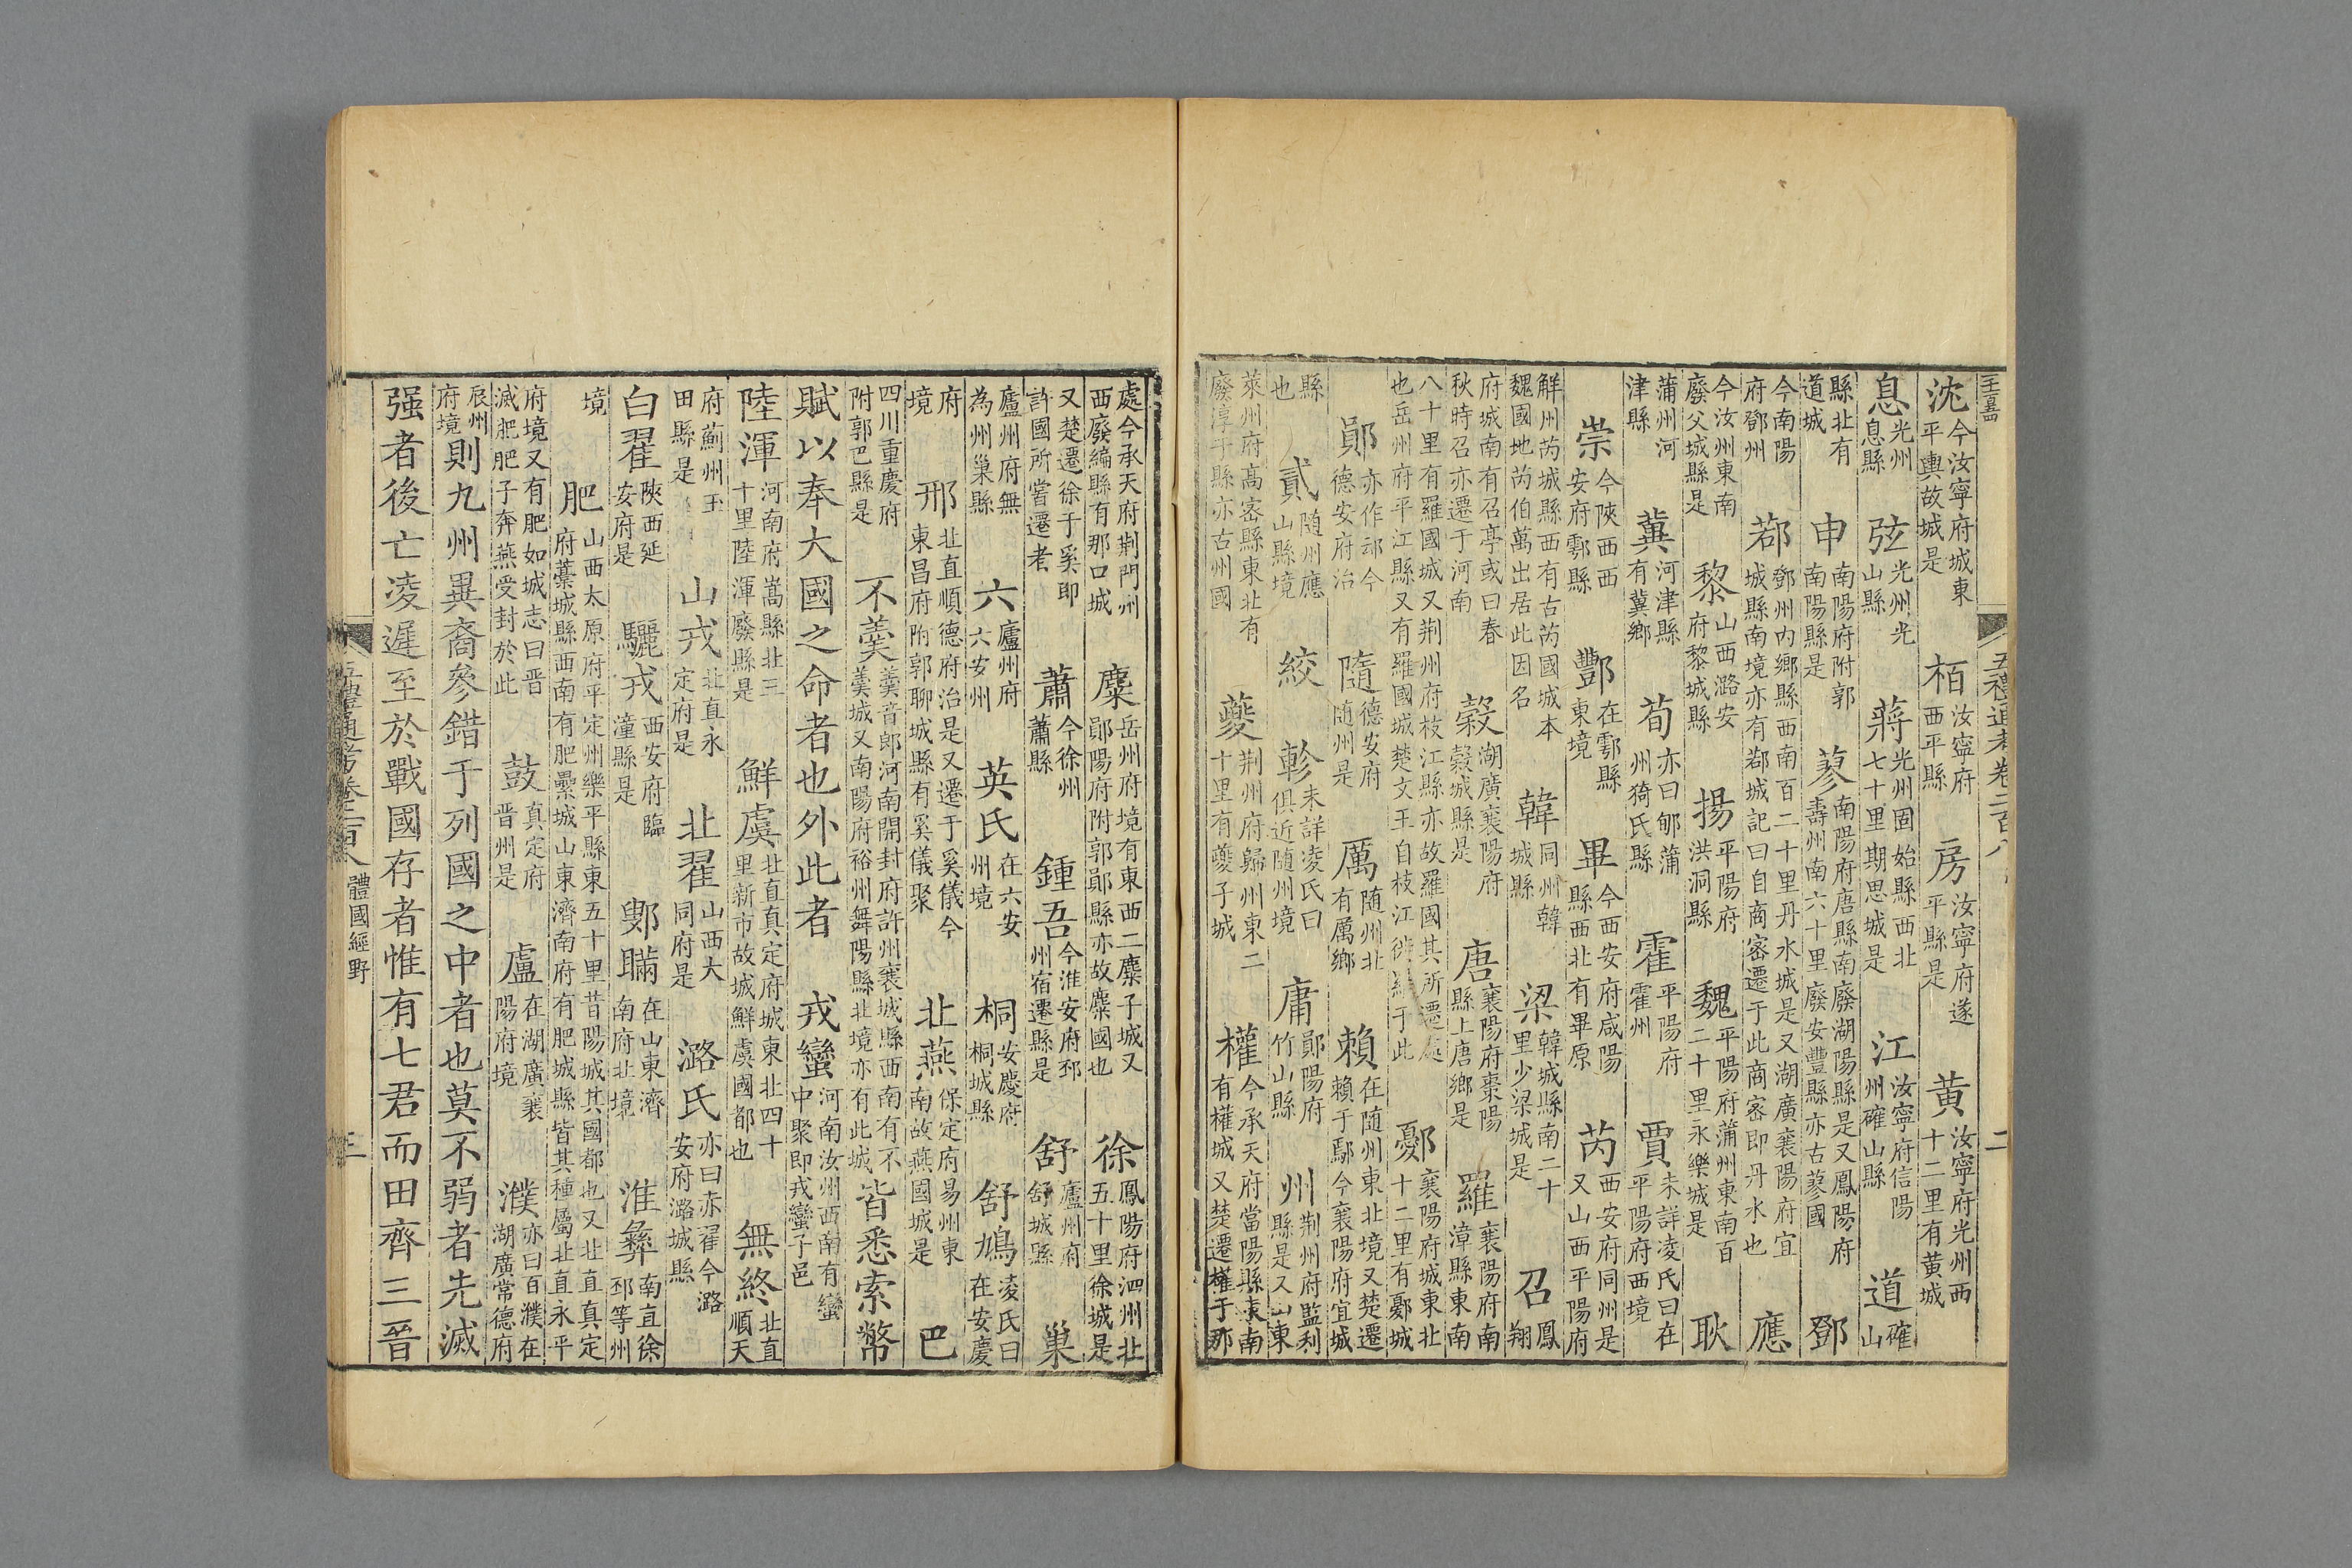 五禮通考卷二百八
二
沈今汝寧府城東平輿故城是 栢汝寧府西平縣 房汝寧府遂平縣是 黄汝寧府光州西十二里有黄城
息光州息縣 弦光州光山縣 蔣光州固始縣西北七十里期思城是 江汝寧府信陽州確山縣 道確山
縣北有道城 申南陽府附郭南陽縣是 蓼南陽府唐縣南廢湖陽縣是又鳳陽府壽州南六十里廢安豐縣亦古蓼國 鄧
今南陽府鄧州 鄀鄧州内鄉縣西南百二十里丹水城是又湖廣襄陽府宜城縣南境亦有鄀城記曰自商密遷于此商密即丹水也 應
今汝州東南廢父城縣是 黎山西潞安府黎城縣 揚平陽府洪洞縣 魏平陽府蒲州東南百二十里永樂城是 耿
蒲州河津縣 冀河津縣有冀鄉 荀亦曰郇蒲州猗氏縣 霍平陽府霍州 賈未詳凌氏曰在平陽府西境
崇今陝西西安府鄠縣 酆在鄠縣東境 畢今西安府咸陽縣西北有畢原 芮西安府同州是又山西平陽府
解州芮城縣西有古芮國城本魏國地芮伯萬出居此因名 韓同州韓城縣 梁韓城縣南二十里少梁城是 召鳳翔
府城南有召亭或曰春秋時召亦遷于河南 榖湖廣襄陽府榖城縣是 唐襄陽府棗陽縣上唐鄉是 羅襄陽府南漳縣東南
八十里有羅國城又荆州府枝江縣亦故羅國其所遷處也岳州府平江縣又有羅國城楚文王自枝江徙于此 鄾襄陽府城東北十二里有鄾城
鄖亦作䢵今德安府治 隨德安府随州是 厲随州北有厲鄉 賴在随州東北境又楚遷賴于鄢今襄陽府宜城
縣也 貳随州應山縣境 絞 軫未詳凌氏曰俱近随州境 庸鄖陽府竹山縣 州荆州府監利縣是又山東
萊州府高密縣東北有廢淳于縣亦古州國 夔荆州府歸州東二十里有夔子城 權今承天府當陽縣東南有權城又楚遷權于那
處今承天府荆門州西廢編縣有那口城 麋岳州府境有東西二麋子城又鄖陽府附郭鄖縣亦故麋國也 徐鳳陽府泗州北五十里徐城是
又楚遷徐于奚即許國所嘗遷者 蕭今徐州蕭縣 鍾吾今淮安府邳州宿遷縣是 舒廬州府舒城縣 巢
廬州府無為州巢縣 六廬州府六安州 英氏在六安州境 桐安慶府桐城縣 舒鳩凌氏曰在安慶
府境 邢北直順德府治是又遷于奚儀今東昌府附郭聊城縣有奚儀聚 北燕保定府易州東南故燕國城是 巴
四川重慶府附郭巴縣是 不羹羹音郎河南開封府許州襄城縣西南有不羹城又南陽府裕州舞陽縣北境亦有此城 皆悉索幣
賦以奉大國之命者也外此者 戎蠻河南汝州西南有蠻中聚即戎蠻子邑
陸渾河南府嵩縣北三十里陸渾廢縣是 鮮虞北直真定府城東北四十里新市故城鮮虞國都也 無終北直順天
府薊州玉田縣是 山戎北直永定府是 北翟山西大同府是 潞氏亦曰赤翟今潞安府潞城縣
白翟陝西延安府是 驪戎西安府臨潼縣是 鄋瞞在山東濟南府北境 淮彝南直徐邳等州
境 肥山西太原府平定州樂平縣東五十里昔陽城其國都也又北直真定府藁城縣西南有肥纍城山東濟南府有肥城縣皆其種屬北直永平
府境又有肥如城志曰晋滅肥肥子奔燕受封於此 鼓真定府晋州是 盧在湖廣襄陽府境 濮亦曰百濮在湖廣常德府
辰州府境 則九州異裔參錯于列國之中者也莫不弱者先滅
强者後亡凌遲至於戰國存者惟有七君而田齊三晉
體國經野
三